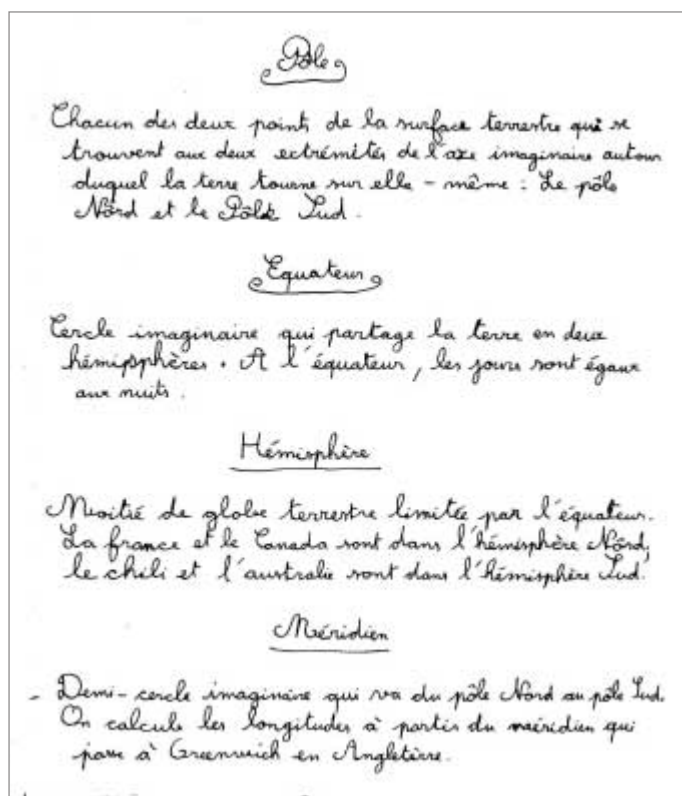 Pôle
Chacun des deux points de la surface terrestre qui se
trouvent aux deux ectrémités de l'axe imaginaire autour
duquel la terre tourne sur elle - même : Le pôle
Nord et le Pôle Sud.
Equateur
Cercle imaginaire qui partage la terre en deux
hémisphères. A l'équateur, les jours sont égaux
aux nuits.
Hémisphère
Moitié de globe terrestre limitée par l'équateur.
La france et le Canada sont dans l'hémisphère Nord,
le chili et l'australie sont dans l'hémisphère Sud.
Méridien
- Demi-cercle imaginaire qui va du pôle Nord au pôle Sud.
On calcule les longitudes à partir du méridien qui
passe à Greenwich en Angleterre.